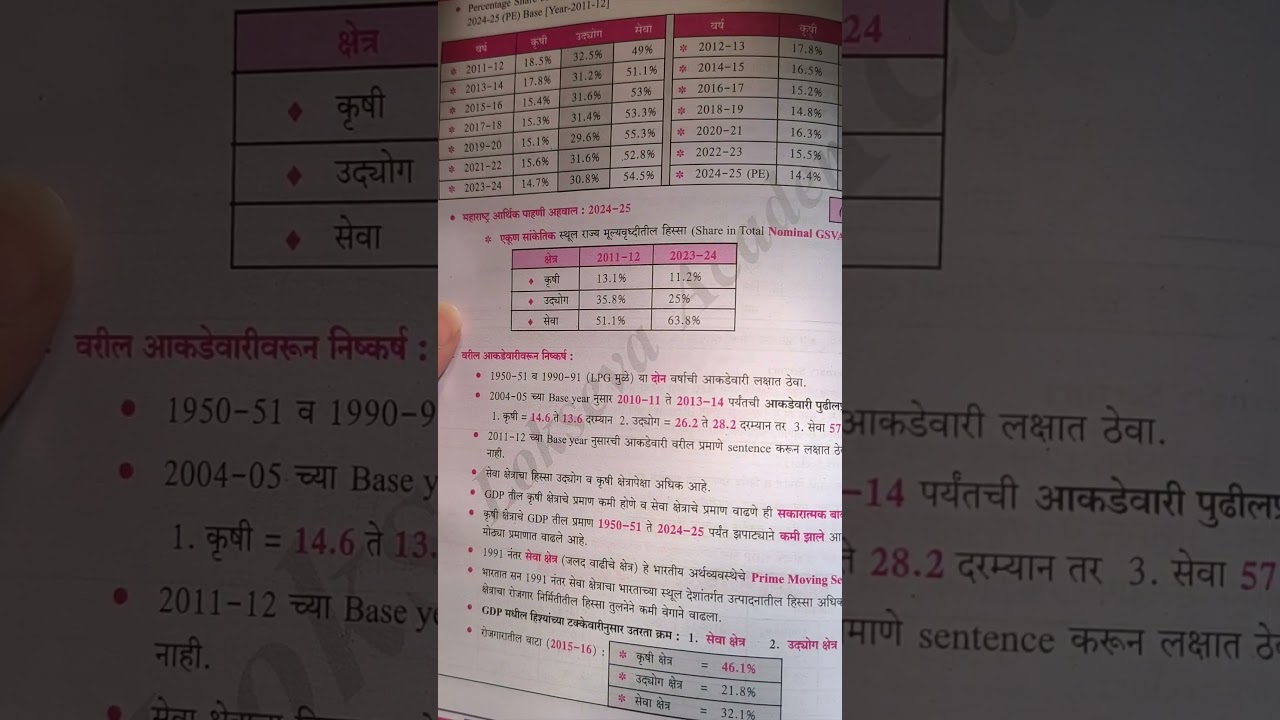 Percentage Share
2024-25 (PE) Base [Year-2011-12]
वर्ष कृषी उद्योग सेवा
2011-12 18.5% 32.5% 49%
2013-14 17.8% 31.2% 51.1%
2015-16 15.4% 31.6% 53%
2017-18 15.3% 31.4% 53.3%
2019-20 15.1% 29.6% 55.3%
2021-22 15.6% 31.6% 52.8%
2023-24 14.7% 30.8% 54.5%
वर्ष कृषी
2012-13 17.8%
2014-15 16.5%
2016-17 15.2%
2018-19 14.8%
2020-21 16.3%
2022-23 15.5%
2024-25 (PE) 14.4%
महाराष्ट्र आर्थिक पाहणी अहवाल : 2024-25
एकूण सांकेतिक स्थूल राज्य मूल्यवृध्दीतील हिस्सा (Share in Total Nominal GSVA
क्षेत्र 2011-12 2023-24
कृषी 13.1% 11.2%
उद्योग 35.8% 25%
सेवा 51.1% 63.8%
वरील आकडेवारीवरून निष्कर्ष :
1950-51 व 1990-91 (LPG मुळे) या दोन वर्षाची आकडेवारी लक्षात ठेवा.
2004-05 च्या Base year नुसार 2010-11 ते 2013-14 पर्यंतची आकडेवारी
1. कृषी = 14.6 ते 13.6 दरम्यान 2. उद्योग = 26.2 ते 28.2 दरम्यान तर 3. सेवा 57
2011-12 च्या Base year नुसारची आकडेवारी वरील प्रमाणे sentence करून लक्षात
नाही.
सेवा क्षेत्राचा हिस्सा उद्योग व कृषी क्षेत्रापेक्षा अधिक आहे.
GDP तील कृषी क्षेत्राचे प्रमाण कमी होणे व सेवा क्षेत्राचे प्रमाण वाढणे ही सकारात्मक
कृषी क्षेत्राचे GDP तील प्रमाण 1950-51 ते 2024-25 पर्यंत झपाट्याने कमी झाले
मोठ्या प्रमाणात वाढले आहे.
1991 नंतर सेवा क्षेत्र (जलद वाढीचे क्षेत्र) हे भारतीय अर्थव्यवस्थेचे Prime Moving
भारतात सन 1991 नंतर सेवा क्षेत्राचा भारताच्या स्थूल देशांतर्गत उत्पादनातील हिस्सा
क्षेत्राचा रोजगार निर्मितीतील हिस्सा तुलनेने कमी वेगाने वाढला.
GDP मधील हिश्यांच्या टक्केवारीनुसार उतरता क्रम : 1. सेवा क्षेत्र 2. उद्योग क्षेत्र
रोजगारातील वाटा (2015-16) :
कृषी क्षेत्र = 46.1%
उद्योग क्षेत्र = 21.8%
सेवा क्षेत्र = 32.1%